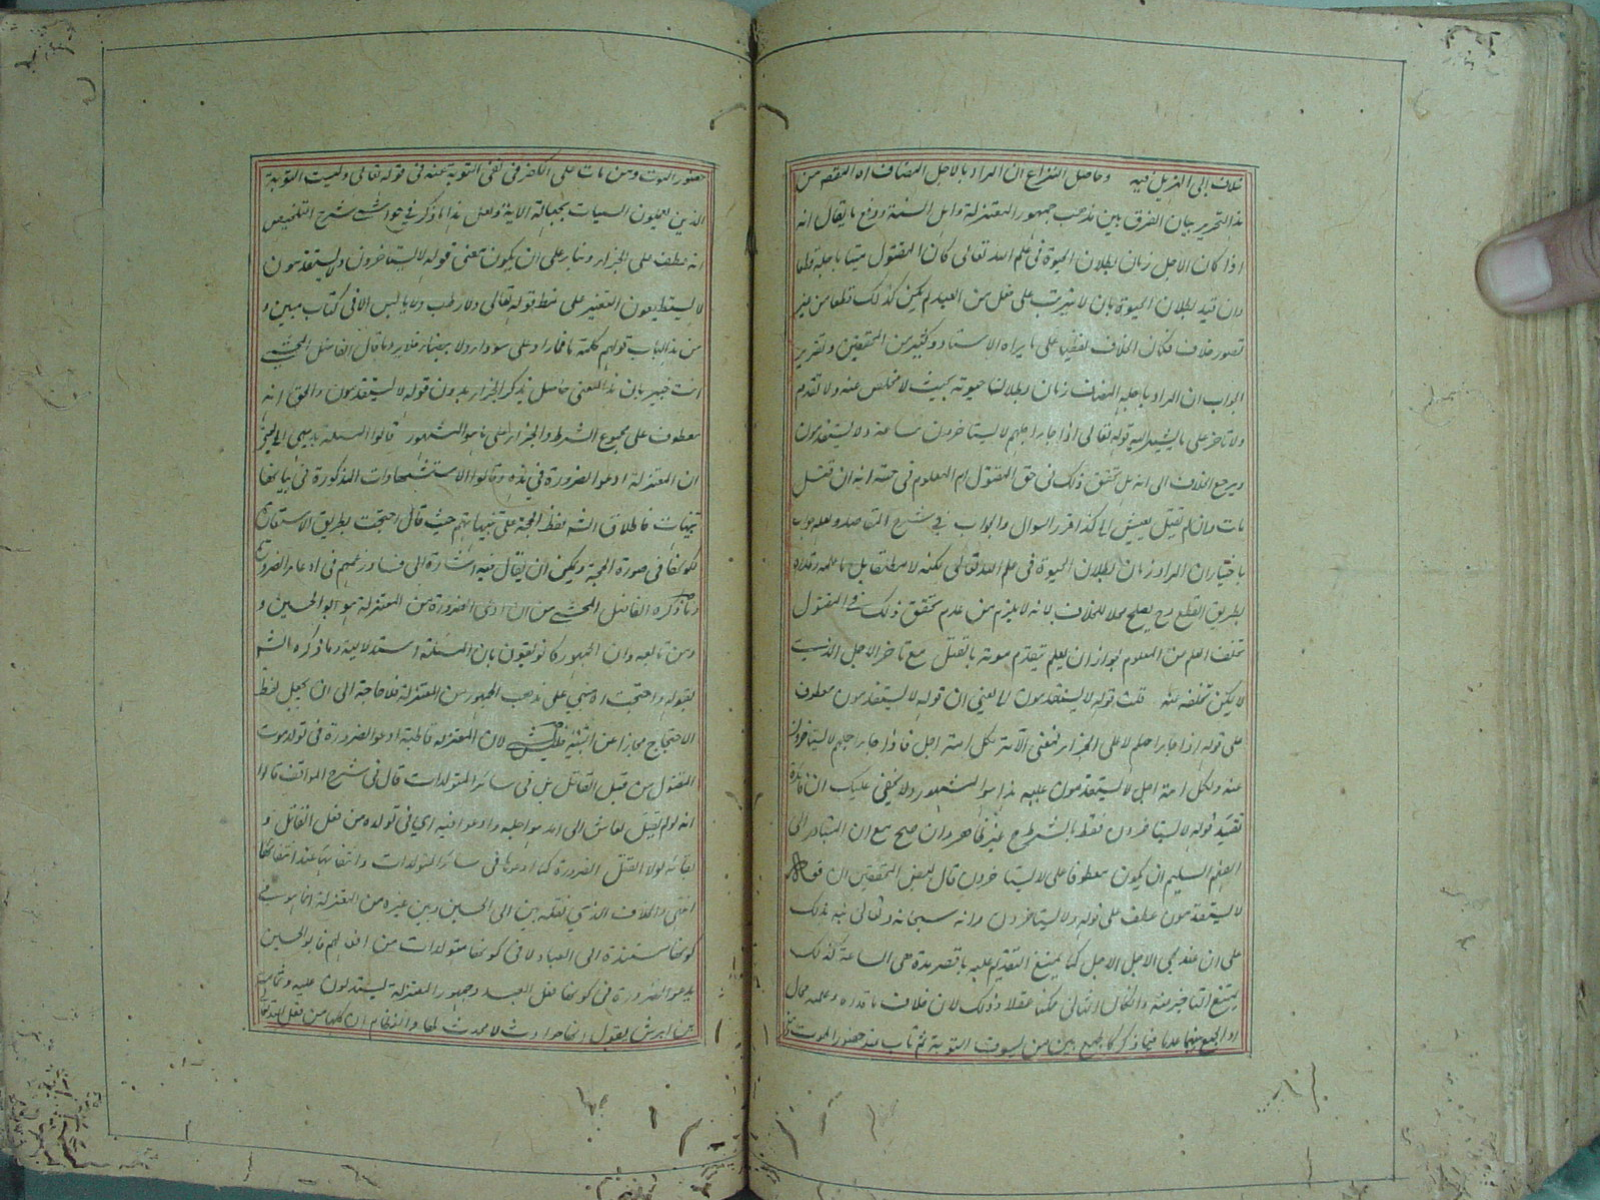 خلاف إلى الهذيل فيه وحاصل النزاع ان المراد بالاجل المضاف اه المقصد من
هذا التحرير بيان الفرق بين مذهب جمهور المعتزلة واهل السنة ودفع ما يقال انه
اذا كان الاجل زمان بطلان الحيوة فى علم الله تعالى كان المقتول ميتا باجله قطعا
وان قيد بطلان الحيوة بان لا يترتب على فعل من العبد لم يكن كذلك قطعا من غير
تصور خلاف فكان الخلاف لفظيا على ما يراه الاستاد وكثير من المحققين وتقرير
الجواب ان المراد باجله المضاف زمان بطلان حيوته بحيث لا محيص عنه ولا تقدم
ولا تاخر على ما يشير اليه قوله تعالى اذا جاء اجلهم لا يستاخرون ساعة ولا يستقدمون
ويرجع الخلاف الى انه هل تحقق ذلك فى حق المقتول ام المعلوم فى حقه انه ان قتل
مات وان لم يقتل يعيش الى كذا قرر السوال والجواب فى شرح المقاصد ولعله جواب
باختيار ان المراد زمان بطلان الحيوة فى علم الله تعالى لكنه لا مطلقا بل ما علمه وقدره
بطريق القطع وح يصلح محلا للخلاف لانه لا يلزم من عدم تحقق ذلك فى المقتول
تخلف العلم عن المعلوم لجواز ان يعلم تقدم موته بالقتل مع تاخر الاجل الذى
لا يمكن تخلفه عنه قلت قوله لا يستقدمون اه يعنى ان قوله لا يستقدمون معطوف
على قوله اذا جاء اجلهم لا على الجزاء فمعنى الآية لكل امة اجل فاذا جاء اجلهم لا يستاخرون
عنه ولكل امة اجل لا يستقدمون عليه هذا هو المشهور ولا يخفى عليك ان فائدة
تقييد قوله لا يستاخرون فقط بالشرط ح غير ظاهر وان صح مع ان المتبادر الى
الفهم السليم ان يكون معطوفا على لا يستاخرون قال بعض المحققين ان قوله
لا يستقدمون عطف على قوله لا يستاخرون وانه سبحانه وتعالى نبه بذلك
على ان عند مجى الاجل الاجل كما يمتنع التقديم عليه باقصر مدة هى الساعة كذلك
يمتنع التاخير عنه وان كان الثانى ممكنا عقلا وذلك لان خلاف ما قدره وعلمه محال
والجمع بينهما عدما فيما ذكر كالجمع بين من يسوف التوبة ثم تاب عند حضور الموت ومن
حضور الموت ومن مات على الكفر فى نفى التوبة عنه فى قوله تعالى وليست التوبة
الذين يعملون السيات بجهالة الآية ولعل هذا ما ذكر فى حواشى شرح التلخيص
انه عطف على الجزاء وبناء على ان يكون معنى قوله لا يستاخرون ولا يستقدمون
لا يستطيعون التغيير على نمط قوله تعالى ولا رطب ولا يابس الا فى كتاب مبين و
من هذا الباب قولهم كلمة فما راد على سوداء ولا بيضاء فلا يرد ما قال الفاضل المحشى
انت خبير بان هذا المعنى حاصل بذكر الجزاء بدون قوله لا يستقدمون والحق انه
معطوف على مجموع الشرط والجزاء على ما هو المشهور قالوا المسئلة بديهى اه يعنى
ان المعتزلة ادعوا الضرورة فى هذه وقالوا الاستشهادات المذكورة فى بيانها
تنبيهات فاطلاق الش لفظ الحجة على تنبيهاتهم حيث قال احتجت بطريق الاستعارة
لكونها فى صورة الحجة ويمكن ان يقال فيه اشارة الى فساد زعمهم فى ادعاء الضرورة
وما ذكره الفاضل المحشى من ان ادعى الضرورة من المعتزلة هو ابو الحسين و
ومن تابعه وان الجمهور كانوا يقولون بان المسئلة استدلالية وما ذكره الش
بقوله واحتجت اه مبنى على مذهب الجمهور من المعتزلة فلا حاجة الى ان يجعل لفظ
الاحتجاج مجازا عن التنبيه فليس بشى لان المعتزلة قاطبة ادعوا الضرورة فى تولد موت
المقتول من قبل القاتل بل فى سائر المتولدات قال فى شرح المواقف قالوا
انه لو لم يقتل لعاش الى امد هو اجله وادعوا فيه اى فى تولده من فعل القاتل و
بقائه لولا القتل الضرورة كما ادعوها فى سائر المتولدات وانتفائها عند انتفائها
انتهى والخلاف الذى نقله بين ابى الحسين وبين غيره من المعتزلة انما هو فى
كونها مستندة الى العباد لا فى كونها متولدات من افعالهم فابو الحسين
يدعوا الضرورة فى كونها فعل العبد وجمهور المعتزلة يستدلون عليه وثمامة
بن اشرس يقول انها حوادث لا محدث لها والنظام ان كلها من فعل الله تعالى